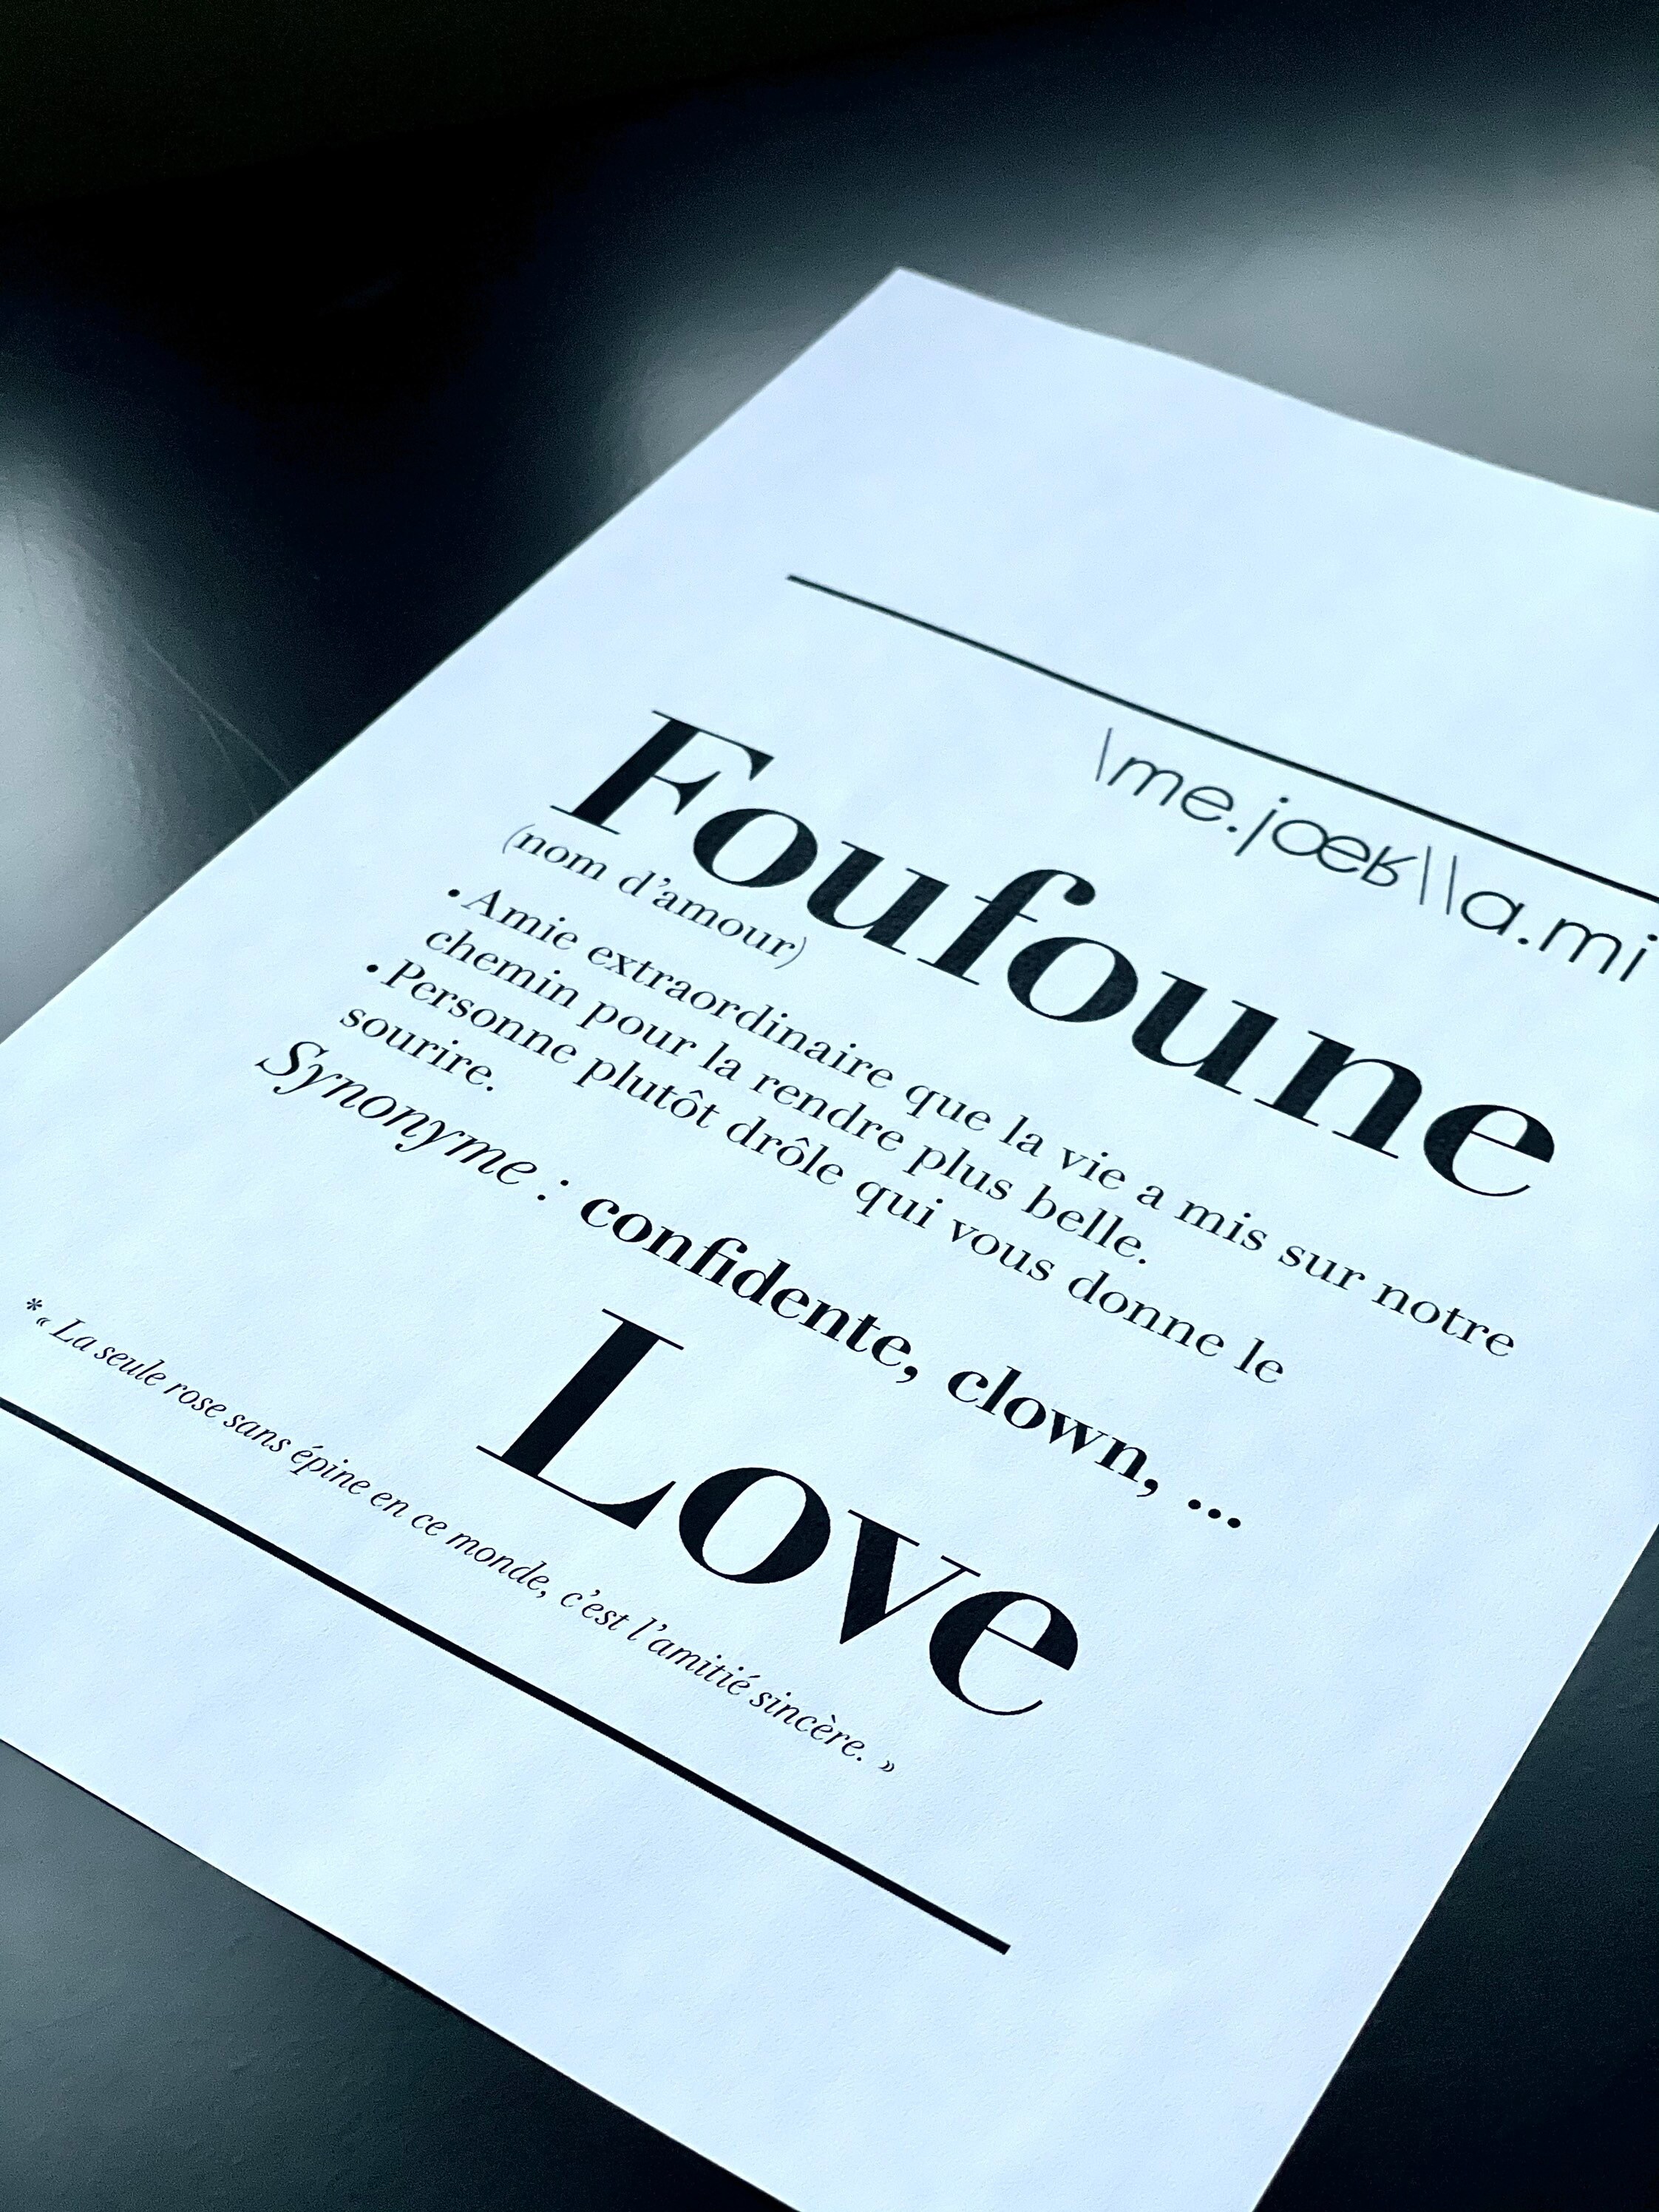 \me.jœʁ\\a.mi
Foufoune
(nom d’amour)
• Amie extraordinaire que la vie a mis sur notre
chemin pour la rendre plus belle.
• Personne plutôt drôle qui vous donne le
sourire.
Synonyme : confidente, clown, ...
Love
*« La seule rose sans épine en ce monde, c’est l’amitié sincère. »